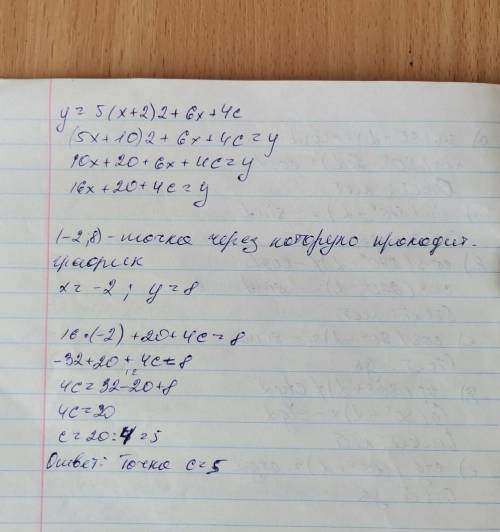 y = 5(x+2)2 + 6x + 4c
(5x+10)2 + 6x + 4c = y
10x + 20 + 6x + 4c = y
16x + 20 + 4c = y
(-2;8) - точка через которую проходит
график
x = -2 ; y = 8
16·(-2) + 20 + 4c = 8
-32 + 20 + 4c = 8
12
4c = 32 - 20 + 8
4c = 20
c = 20 : 4 = 5
Ответ: Точка c = 5